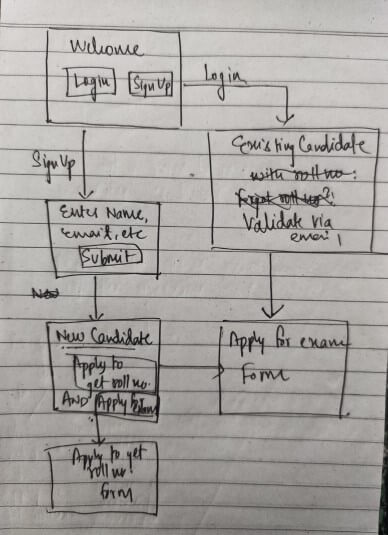 Welcome
Login SignUp
Login
SignUp
Existing Candidate
with roll no.
Forgot roll no?
Validate via
email,
Enter Name,
Email, etc
Submit
New
New Candidate
Apply to
get roll no.
AND Apply for exam
Apply for exam
Form
Apply to get
roll no.
form